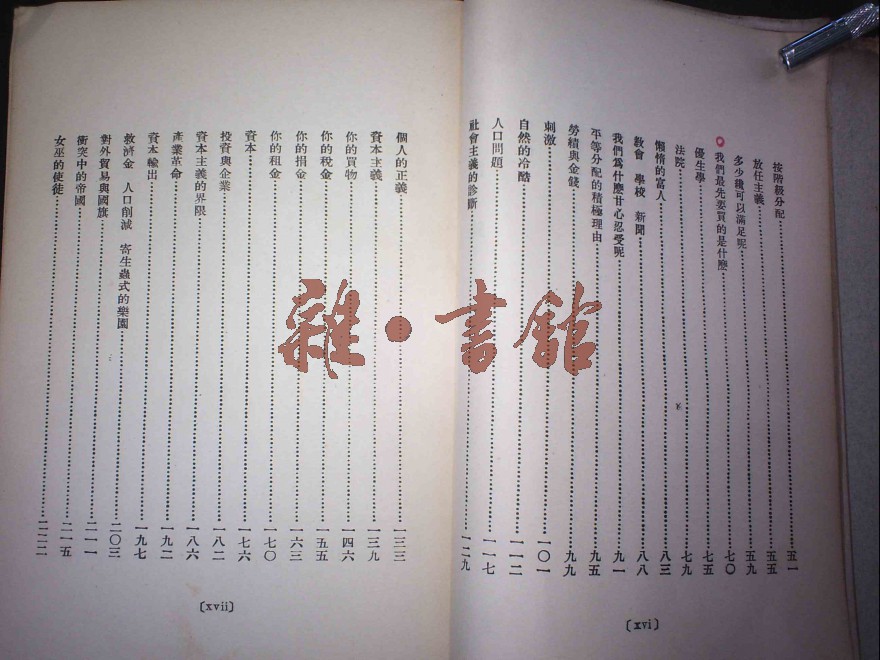 按階級分配 五一
放任主義 五五
多少錢可以滿足呢 五九
我們最先要買的是什麼 七〇
優生學 七五
法院 七九
懶惰的富人 八三
敎會 學校 新聞 八八
我們爲什麼甘心忍受呢 九一
平等分配的積極理由 九五
勞績與金錢 九九
刺激 一〇一
自然的冷酷 一一二
人口問題 一一七
社會主義的診斷 一二九
〔xvi〕
個人的正義 一三三
資本主義 一三九
你的買物 一四六
你的稅金 一五五
你的捐金 一六三
你的租金 一七〇
資本 一七六
投資與企業 一八二
資本主義的界限 一八六
產業革命 一九二
資本輸出 一九七
救濟金 人口削減 寄生蟲式的樂園 二〇三
對外貿易與國旗 二一一
衝突中的帝國 二一五
女巫的使徒 二二二
〔xvii〕
雜·書館